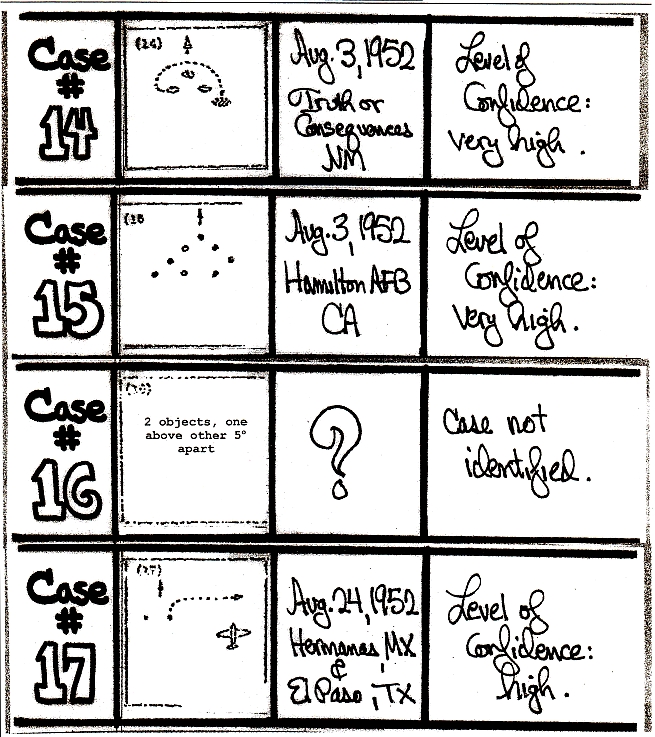 Case
#
14
(14)
Aug. 3, 1952
Truth or
Consequences
NM
Level of
Confidence:
very high.
Case
#
15
(15
Aug. 3, 1952
Hamilton AFB
CA
Level of
Confidence:
very high.
Case
#
16
2 objects, one
above other 5°
apart
?
Case not
identified.
Case
#
17
(17)
Aug. 24, 1952
Hermanas, MX
&
El Paso, TX
Level of
Confidence:
high.